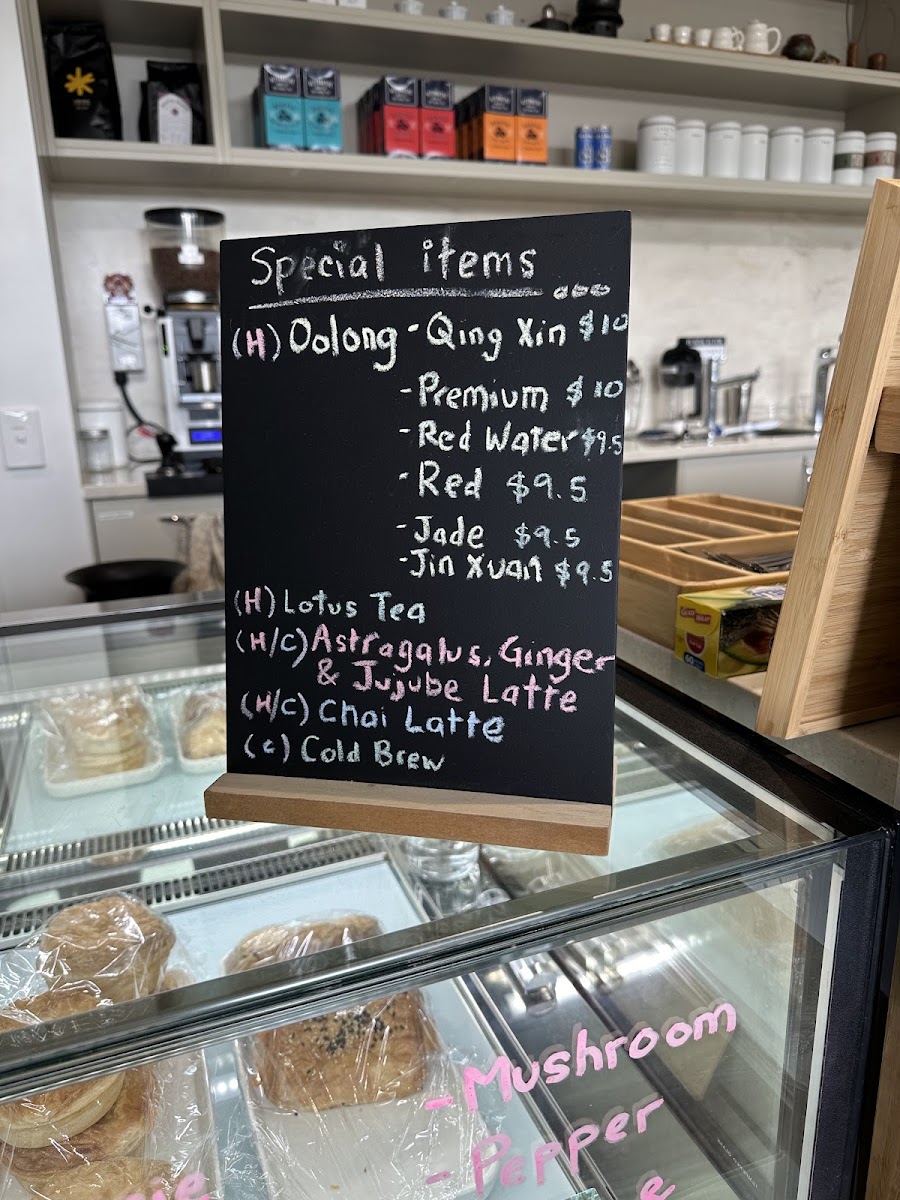 Special items
(H) Oolong - Qing Xin $10
- Premium $10
- Red Water $9.5
- Red $9.5
- Jade $9.5
- Jin Xuan $9.5
(H) Lotus Tea
(H/C) Astragalus, Ginger
& Jujube Latte
(H/C) Chai Latte
(c) Cold Brew
- Mushroom
- Pepper